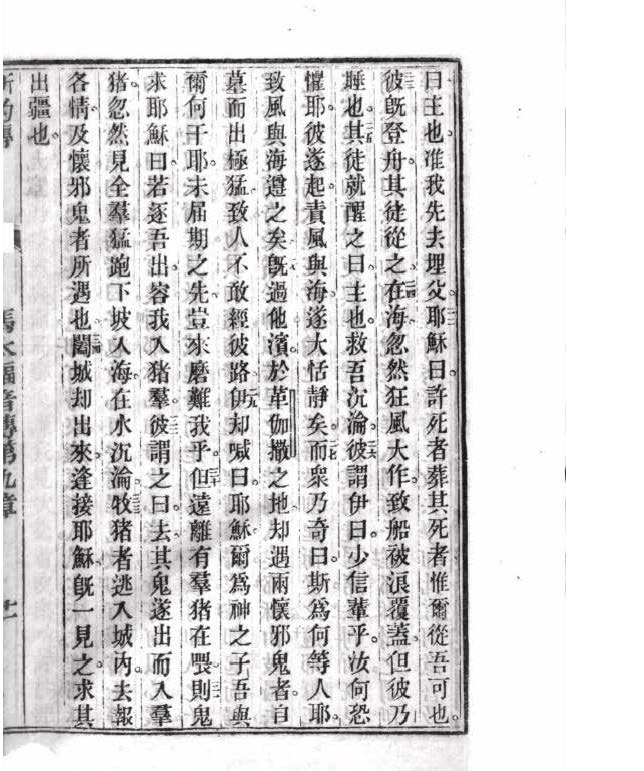 曰主也准我先去埋父耶穌曰許死者葬其死者惟爾從吾可也
彼旣登舟其徒從之在海忽然狂風大作致船被浪覆蓋但彼乃
睡也其徒就醒之曰主也救吾沉淪彼謂伊曰少信輩乎汝何恐
懼耶彼遂起責風與海遂大恬靜矣而眾乃奇曰斯爲何等人耶
致風與海遵之矣旣過他濱於革伽撒之地却遇兩懷邪鬼者自
墓而出極猛致人不敢經彼路伊却喊曰耶穌爾爲神之子吾與
爾何干耶未屆期之先豈來磨難我乎但遠離有羣猪在喂則鬼
求耶穌曰若逐吾出容我入猪羣彼謂之曰去其鬼遂出而入羣
猪忽然見全羣猛跑下坡入海在水沉淪牧猪者逃入城內去報
各情及懷邪鬼者所遇也闔城却出來逢接耶穌旣一見之求其
出疆也
福音傳第九章